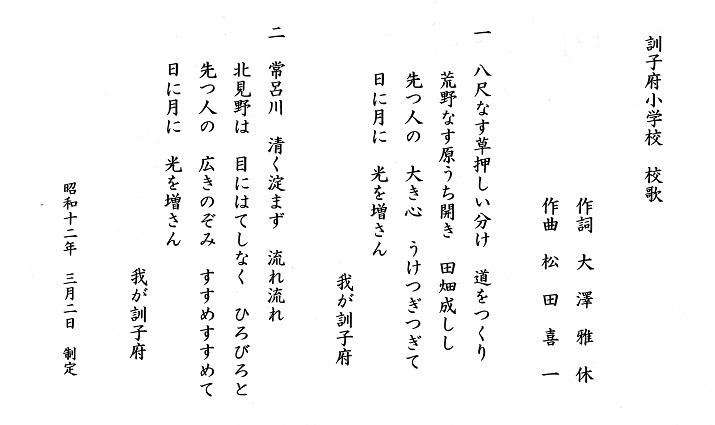 訓子府小学校　校歌
作詞　大澤雅休
作曲　松田喜一
一　八尺なす草押しい分け　道をつくり
荒野なす原うち開き　田畑成しし
先つ人の　大き心　うけつぎつぎて
日に月に　光を増さん
我が訓子府
二　常呂川　清く淀まず　流れ流れ
北見野は　目にはてしなく　ひろびろと
先つ人の　広きのぞみ　すすめすすめて
日に月に　光を増さん
我が訓子府
昭和十二年　三月二日　制定